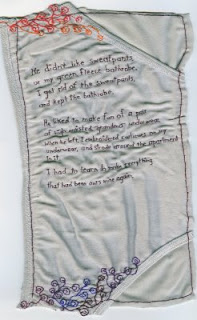 He didn't like sweatpants
or my green fleece bathrobe.
I got rid of the sweatpants,
and kept the bathrobe.
He liked to make fun of a pair
of wide waisted grandma underwear.
When he left I embroidered on my
underwear, and strode around the apartment
in it.
I had to learn to make everything
that had been ours mine again.